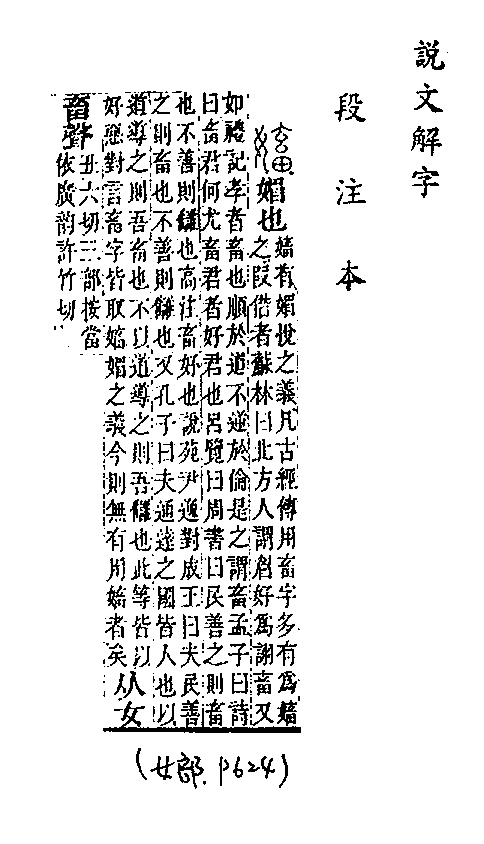 說文解字
段注本
㜅 媚也 㜅有媚悅之義凡古經傳用畜字多有爲㜅
之叚借者蘇林曰北方人謂眉好爲詡畜又
如禮記孝者畜也順於道不逆於倫是之謂畜孟子曰詩
曰畜君何尤畜君者好君也呂覽曰周書曰民善之則畜
也不善則讎也高注畜好也說苑尹逸對成王曰夫民善
之則畜也不善則讎也又孔子曰夫通達之國皆人也以
道導之則吾畜也不以道導之則吾讎也此等皆以
好惡對言畜字皆取㜅媚之義今則無有用㜅者矣 从女
畜聲 丑六切三部按當
依廣韵許竹切
(女部. P624)